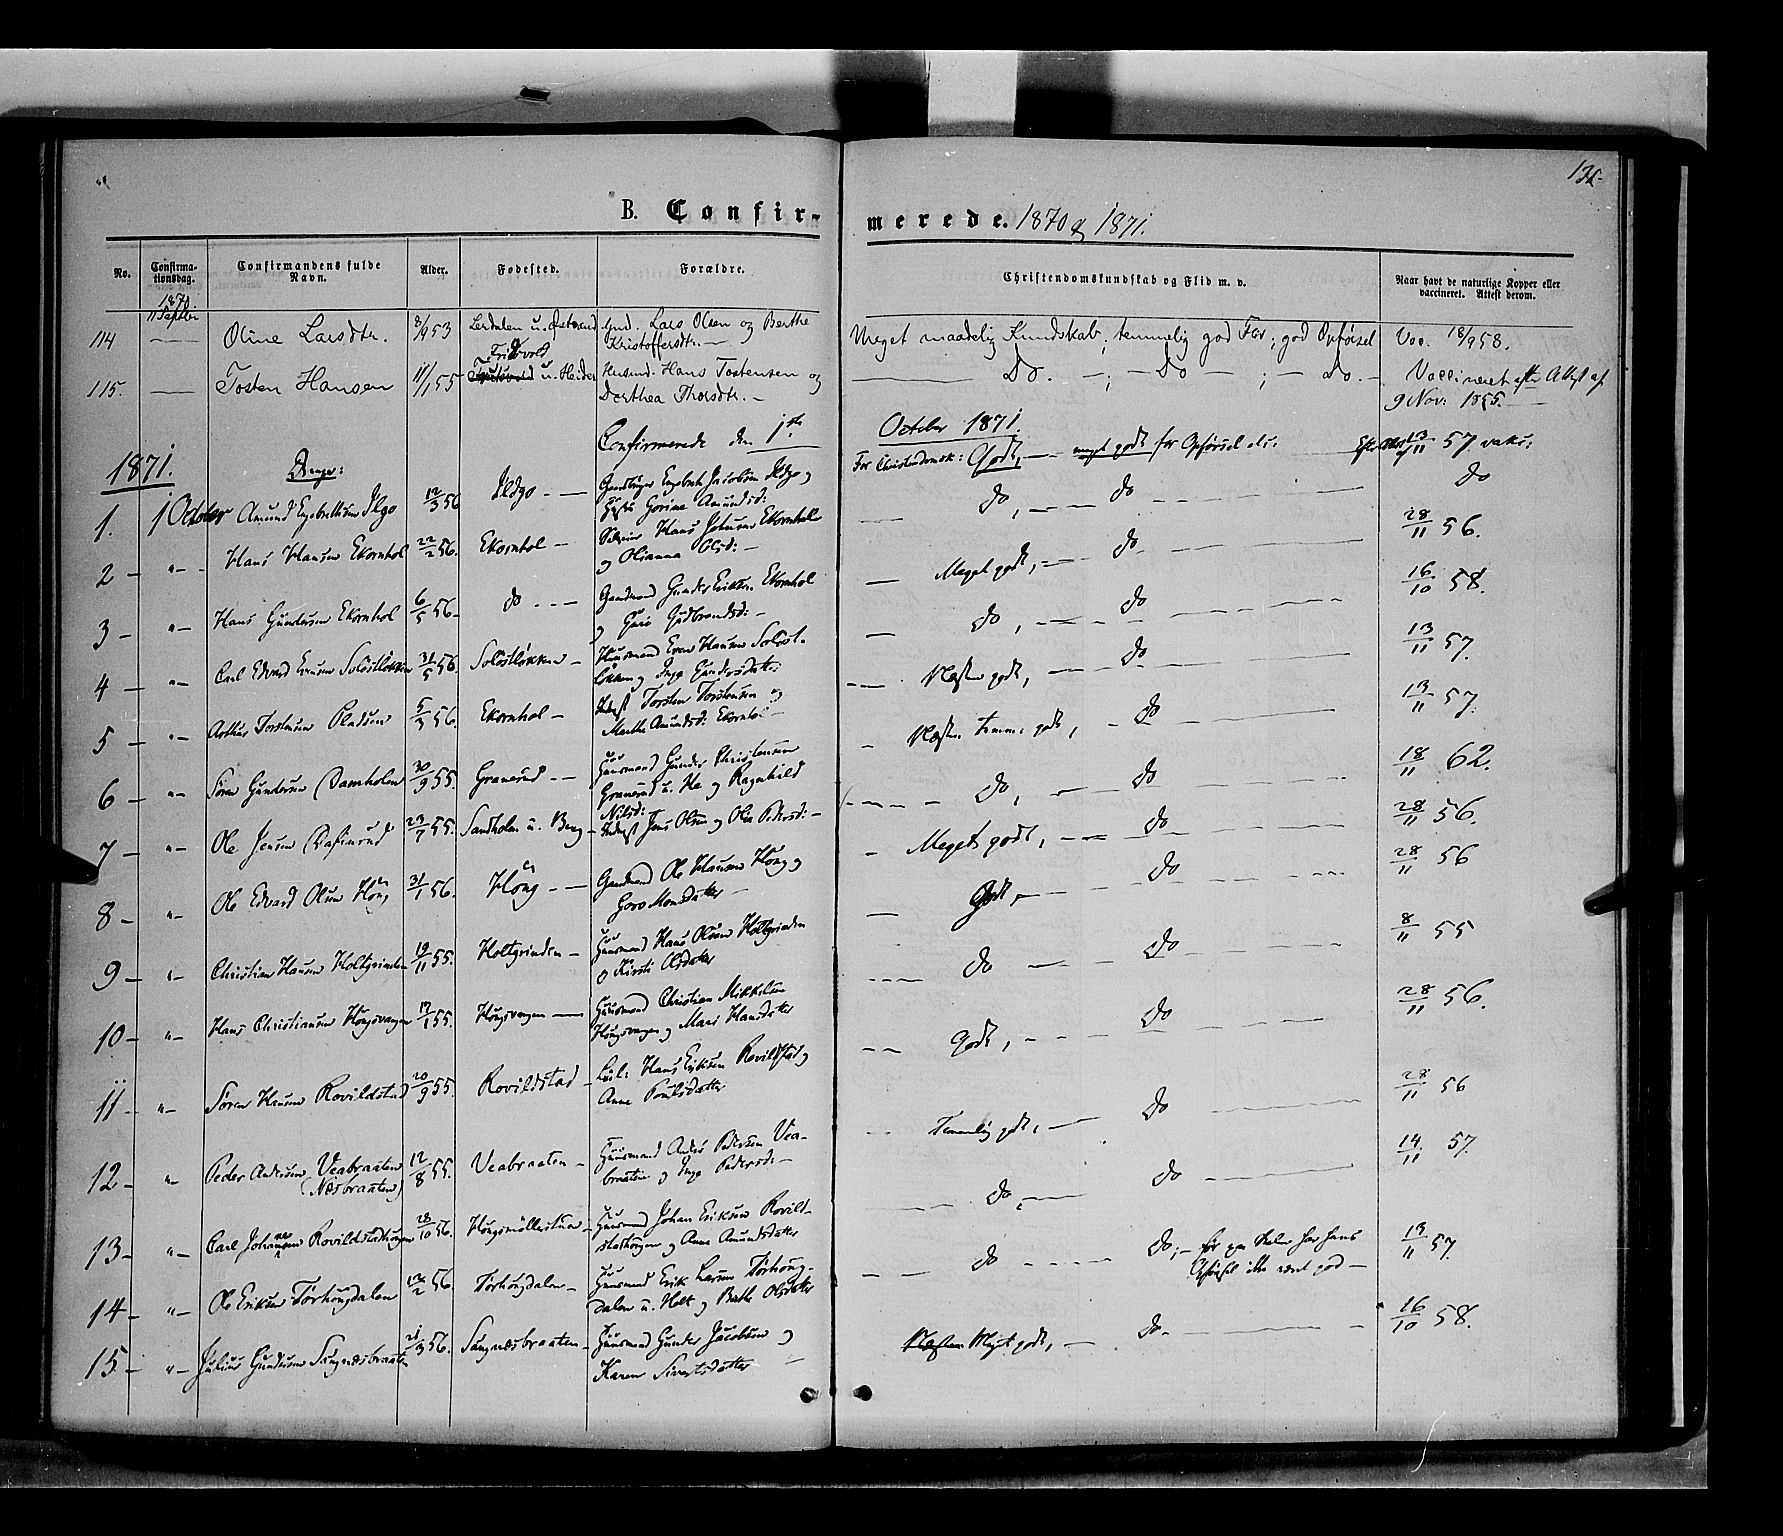 135
B. Confir-
merede. 1870 og 1871.
No.
Confirma-
tionsdag.
Confirmandens fulde
Navn.
Alder.
Fødested.
Forældre.
Christendomskundskab og Flid m. v.
Naar havt de naturlige Kopper eller
vaccineret. Attest derom.
1870
11 Septbr
114 Oline Larsdtr. 8/9 53 Lerdalen u. Østvend Gmd. Lars Olsen og Berthe
Kristoffersdtr.
Meget maadelig Kundskab, temmelig god Flid; god Opførsel Vac. 18/9 58.
115. Tosten Hansen 11/1 55 Fridvold u. Heider Husmd. Hans Tostensen og
Dorthea Thorsdtr.
Do. — ; — Do — ; — Do. — Vaccineret efter Attest af
9 Nov: 1855.
Confirmerede den 1ste October 1871.
1871. Drenge:
For Christendomsk: Godt, — meget godt for Opførsel 13/11 57 vakc.
1. 1 October Amund Engebrettsen Ilgo 12/3 56 Ildgo Gaardbruger Engebret Jacobsen Ildgo og
Gorine Amundsd:
do, do do
2 " Hans Hansen Ekornhol 22/2 56. Ekornhol Hans Johnsen Ekornhol
og Olianna Olsd:
Meget godt, do 28/11 56.
3 " Hans Gundersen Ekornhol 6/5 56 do Gaardmand Gunder Eriksen Ekornhol
og Guri Gudbrandsd:
do, do 16/10 58.
4 " Carl Edvard Evensen Solöstløkken 31/5 56 Solöstløkken Huusmand Even Hansen Solöst-
løkken og Inge Gundersdatter
Næsten godt, do 13/11 57.
5 " Arthur Torstensen 5/3 56. Ekornhol Inderst Torsten Torstensen og
Marthe Amundsd: Ekornhol
Næsten temme. godt, do 13/11 57.
6 " Søren Gundersen Damholen 30/9 55. Granerud Huusmand Gunder Christensen
Granerud u. He og Ragnhild
Nilsd:
do, do 18/11 62.
7 " Ole Jensen 23/7 55. Sandholen u. Berg Inderst Jens Olsen og Olea Pedersd:
Meget godt, do 28/11 56.
8 " Ole Edvard Olsen Höng 31/1 56. Höng Gaardmand Ole Hansen Höng og
Goro Monsdatter
Godt, do 28/11 56
9 " Christian Hansen Holtgrinden 19/11 55. Holtgrinden Huusmand Hans Olsen Holtgrinden
og Kirsti Olsdatter
do do 8/11 55
10 " Hans Christiansen Höngsvangen 17/1 55. Höngsvangen Huusmand Christian Mikkelsen
Höngsvangen og Mari Hansdatter
Godt, do 28/11 56.
11 " Søren Hansen Rovildstad 20/9 55. Rovildstad Hans Eriksen Rovildstad og
Anne Poulsdatter
Temmelig godt, do 28/11 56
12 " Peder Andersen Veabraaten 12/8 55. Veabraaten Huusmand Anders Pedersen Vea-
(Næsbraaten) braaten og Inge Pedersd:
do, do 14/11 57.
13 " Carl Johannesen Rovildstadhøgen 28/10 56. Höngsmöllerstuen Huusmand Johan Eriksen Rovild-
stadhøgen og Anne Amundsdatter
do do; — for har hans
Opførsel ikke været god — 13/11 57
14 " Ole Eriksen Törhougdalen 12/2 56. Törhougdalen Huusmand Erik Larsen Törhoug-
dalen u. Holt og Berthe Olsdatter
15 " Julius Gundersen Sangnæsbraaten 21/3 56. Sangnæsbraaten Huusmand Gunder Jacobsen og
Karen Sivertsdatter
Næsten Meget godt, do 16/10 58.